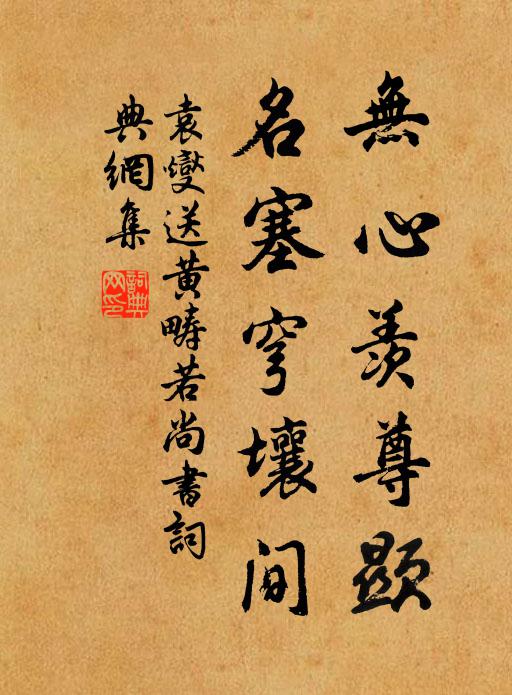 無心羨尊顯
名塞穹壤間
袁燮送黄疇若尚書詞
典網集
詞典
网印